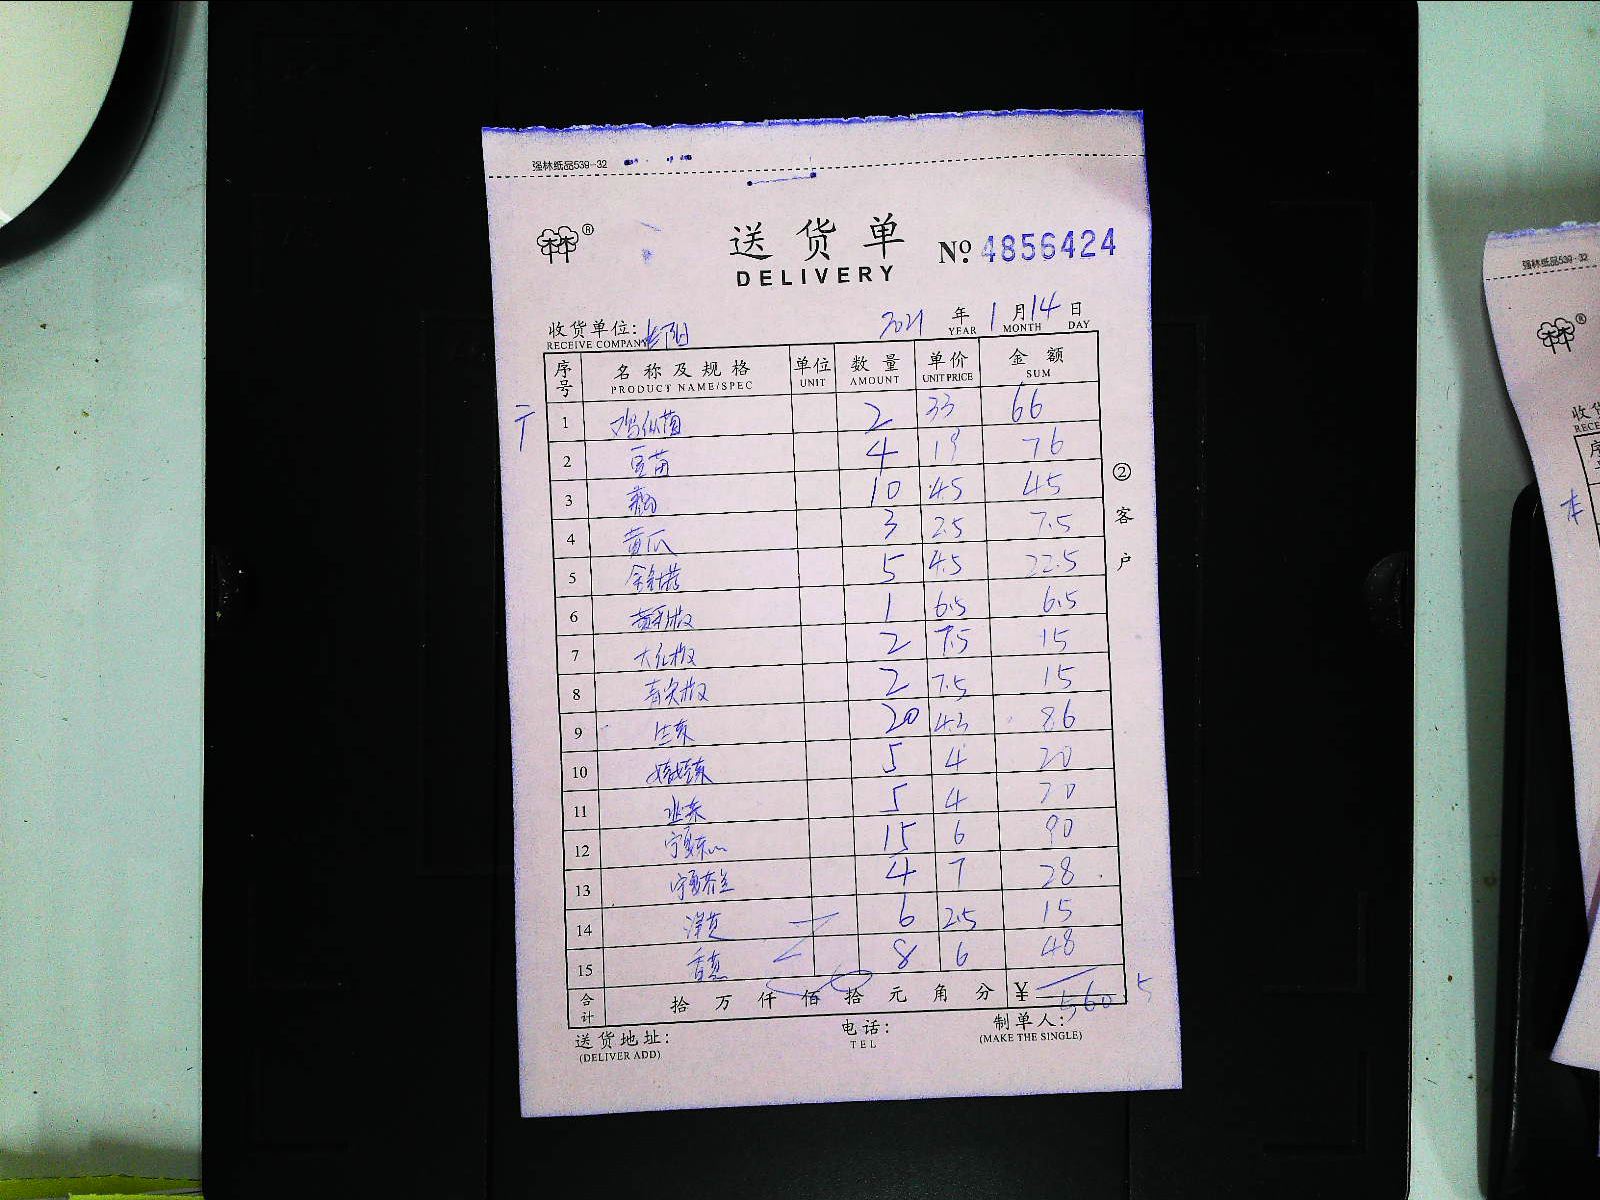 强林纸品539-32
林林®
送货单
DELIVERY
No. 4856424
收货单位:
RECEIVE COMPANY
2021年1月14日
YEAR MONTH DAY
序号 名称及规格 单位 数量 单价 金额
PRODUCT NAME/SPEC UNIT AMOUNT UNIT PRICE SUM
1 鸡枞菌 2 33 66
2 豆苗 4 19 76
3 10 4.5 45
4 黄瓜 3 2.5 7.5
5 5 4.5 22.5
6 1 6.5 6.5
7 大红椒 2 7.5 15
8 青尖椒 2 7.5 15
9 生菜 20 4.3 86
10 娃娃菜 5 4 20
11 5 4 20
12 宁夏菜心 15 6 90
13 宁夏芥兰 4 7 28
14 6 2.5 15
15 8 6 48
合计 拾万仟佰拾元角分 ¥ 560 5
②客户
送货地址:
(DELIVER ADD)
电话:
TEL
制单人:
(MAKE THE SINGLE)
强林纸品539-32
林林®